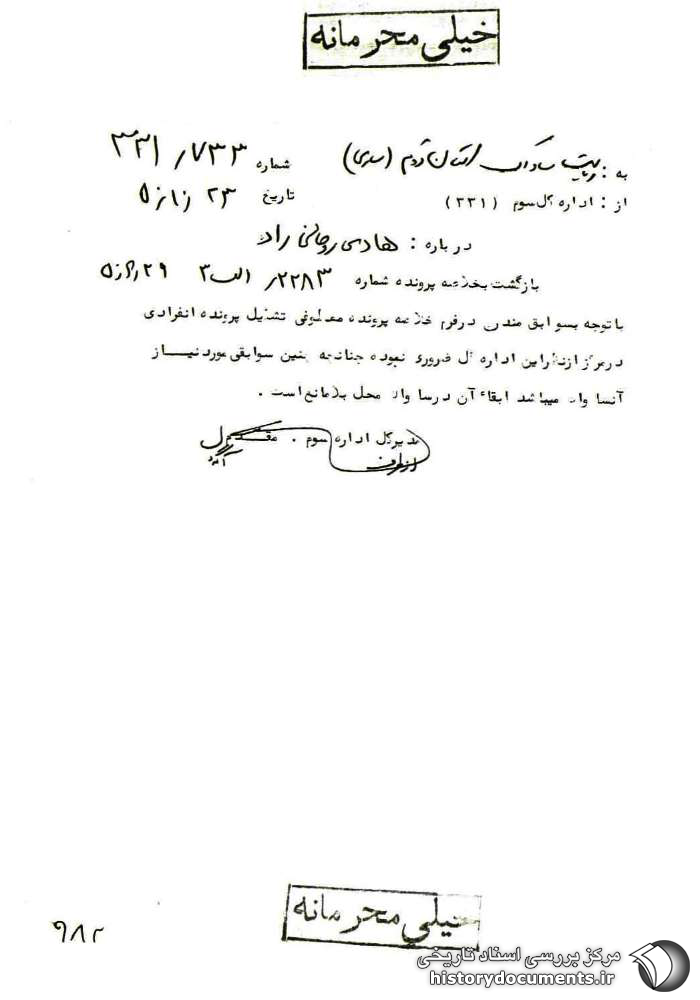 خیلی محرمانه
به : ریاست ساواک استان دوم (ساری) شماره ۳۳۱/۷۳۳
از : اداره کل سوم (۳۳۱) تاریخ
درباره : هادی روحانی راد
بازگشت بخلاصه پرونده شماره ۲۲۸۳/الف۳
باتوجه بسوابق مندرج در فرم خلاصه پرونده معطوفی تشکیل پرونده انفرادی
در مرکز از نظر این اداره کل ضروری نبوده چنانچه چنین سوابقی مورد نیاز
آنساواک میباشد ابقاء آن در ساواک محل بلامانع است .
مدیرکل اداره سوم . مقدم
از طرف
خیلی محرمانه
۹۸۲
مرکز بررسی اسناد تاریخی
historydocuments.ir